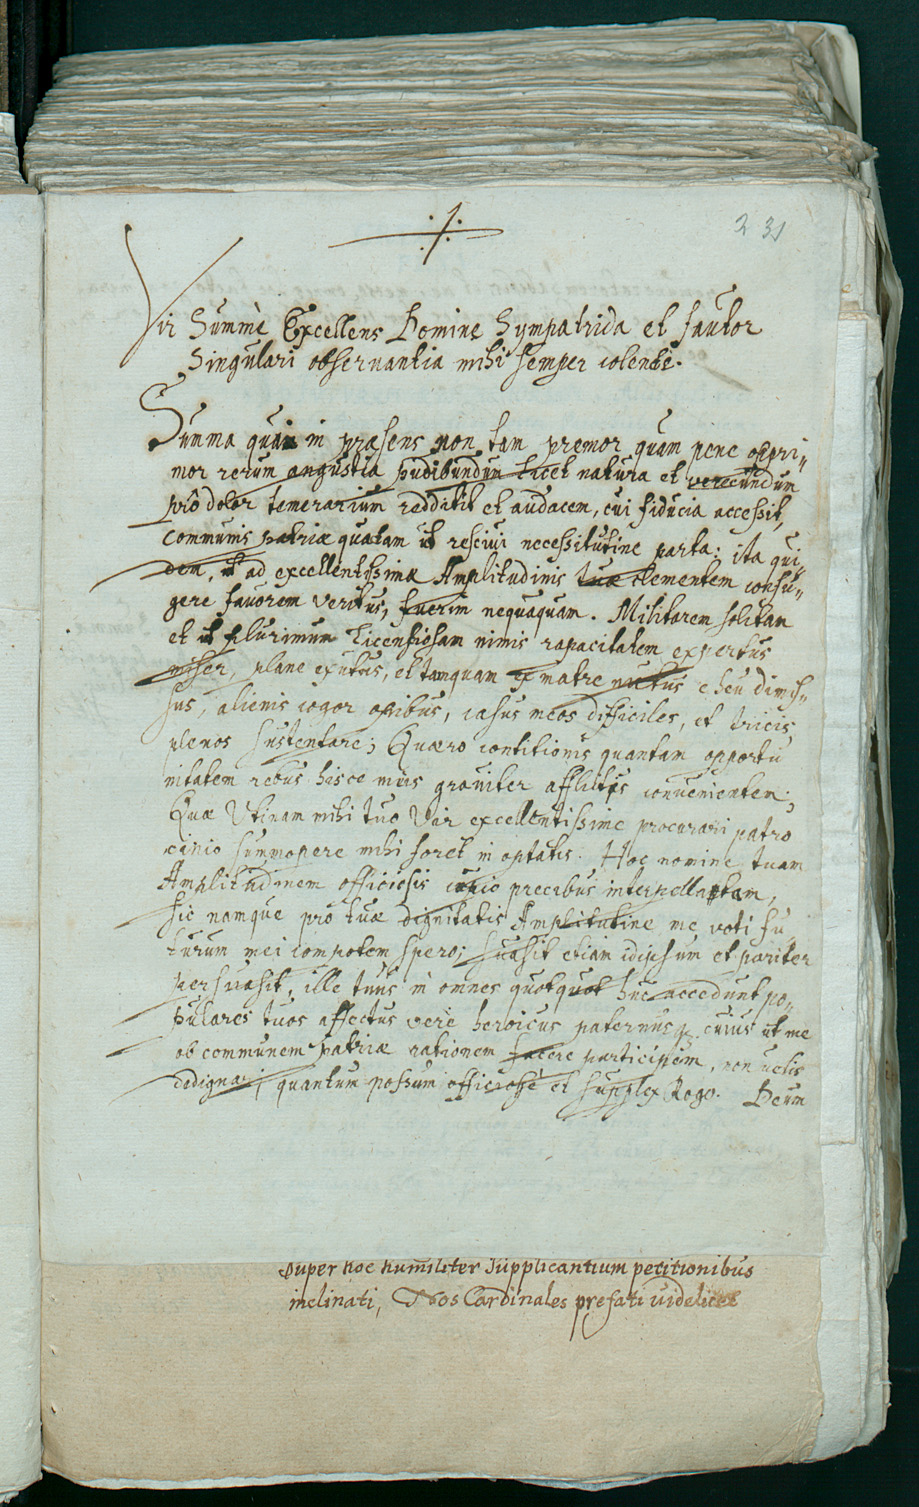 231
Vir Summè Excellens Domine Sympatrida et fautor
Singulari obseruantia mihi semper colende.
Summa qua in præsens non tam premor quam pene oppri-
mor rerum angustia pudibundum licet natura et verecundum
prô dolor temerarium reddidit et audacem, cui fiducia accessit,
communis patriæ quatam ut resciui necessitutine parta: ita qui-
dem, ut ad excellentissimæ Amplitudinis tuæ clementem confu-
gere fauorem veritus, fuerim nequaquam. Militarem solitam
et ut plurimum licensiosam nimis rapacitatem expertus
miser, plane exutus, et tamquam ex matre nudus eheu dimis-
sus, alienis cogor opibus, casus meos difficiles, et tricis
plenos sustentare; Quæro contitionis quantam opportu
nitatem rebus hisce meis grauiter afflictis conuenientem;
Quæ Utinam mihi tuo Vir excellentissime procurari patro
cinio summopere mihi foret in optatis. Hoc nomine tuam
Amplitudinem officiosis precibus interpellatam,
sic namque pro tuæ dignitatis Amplitutine me voti fu
turum mei compotem spero; suasit etiam idipsum et pariter
persuasit, ille tuus in omnes quotquot huc accedunt po-
pulares tuos affectus verè heroicus paternus cuius ut me
ob communem patriæ rationem facere participem, non uelis
dedignari, quantum possum officiosè et supplex Rogo. Deum
super hoc humiliter supplicantium petitionibus
inclinati, Nos Cardinales prefati uidelicet